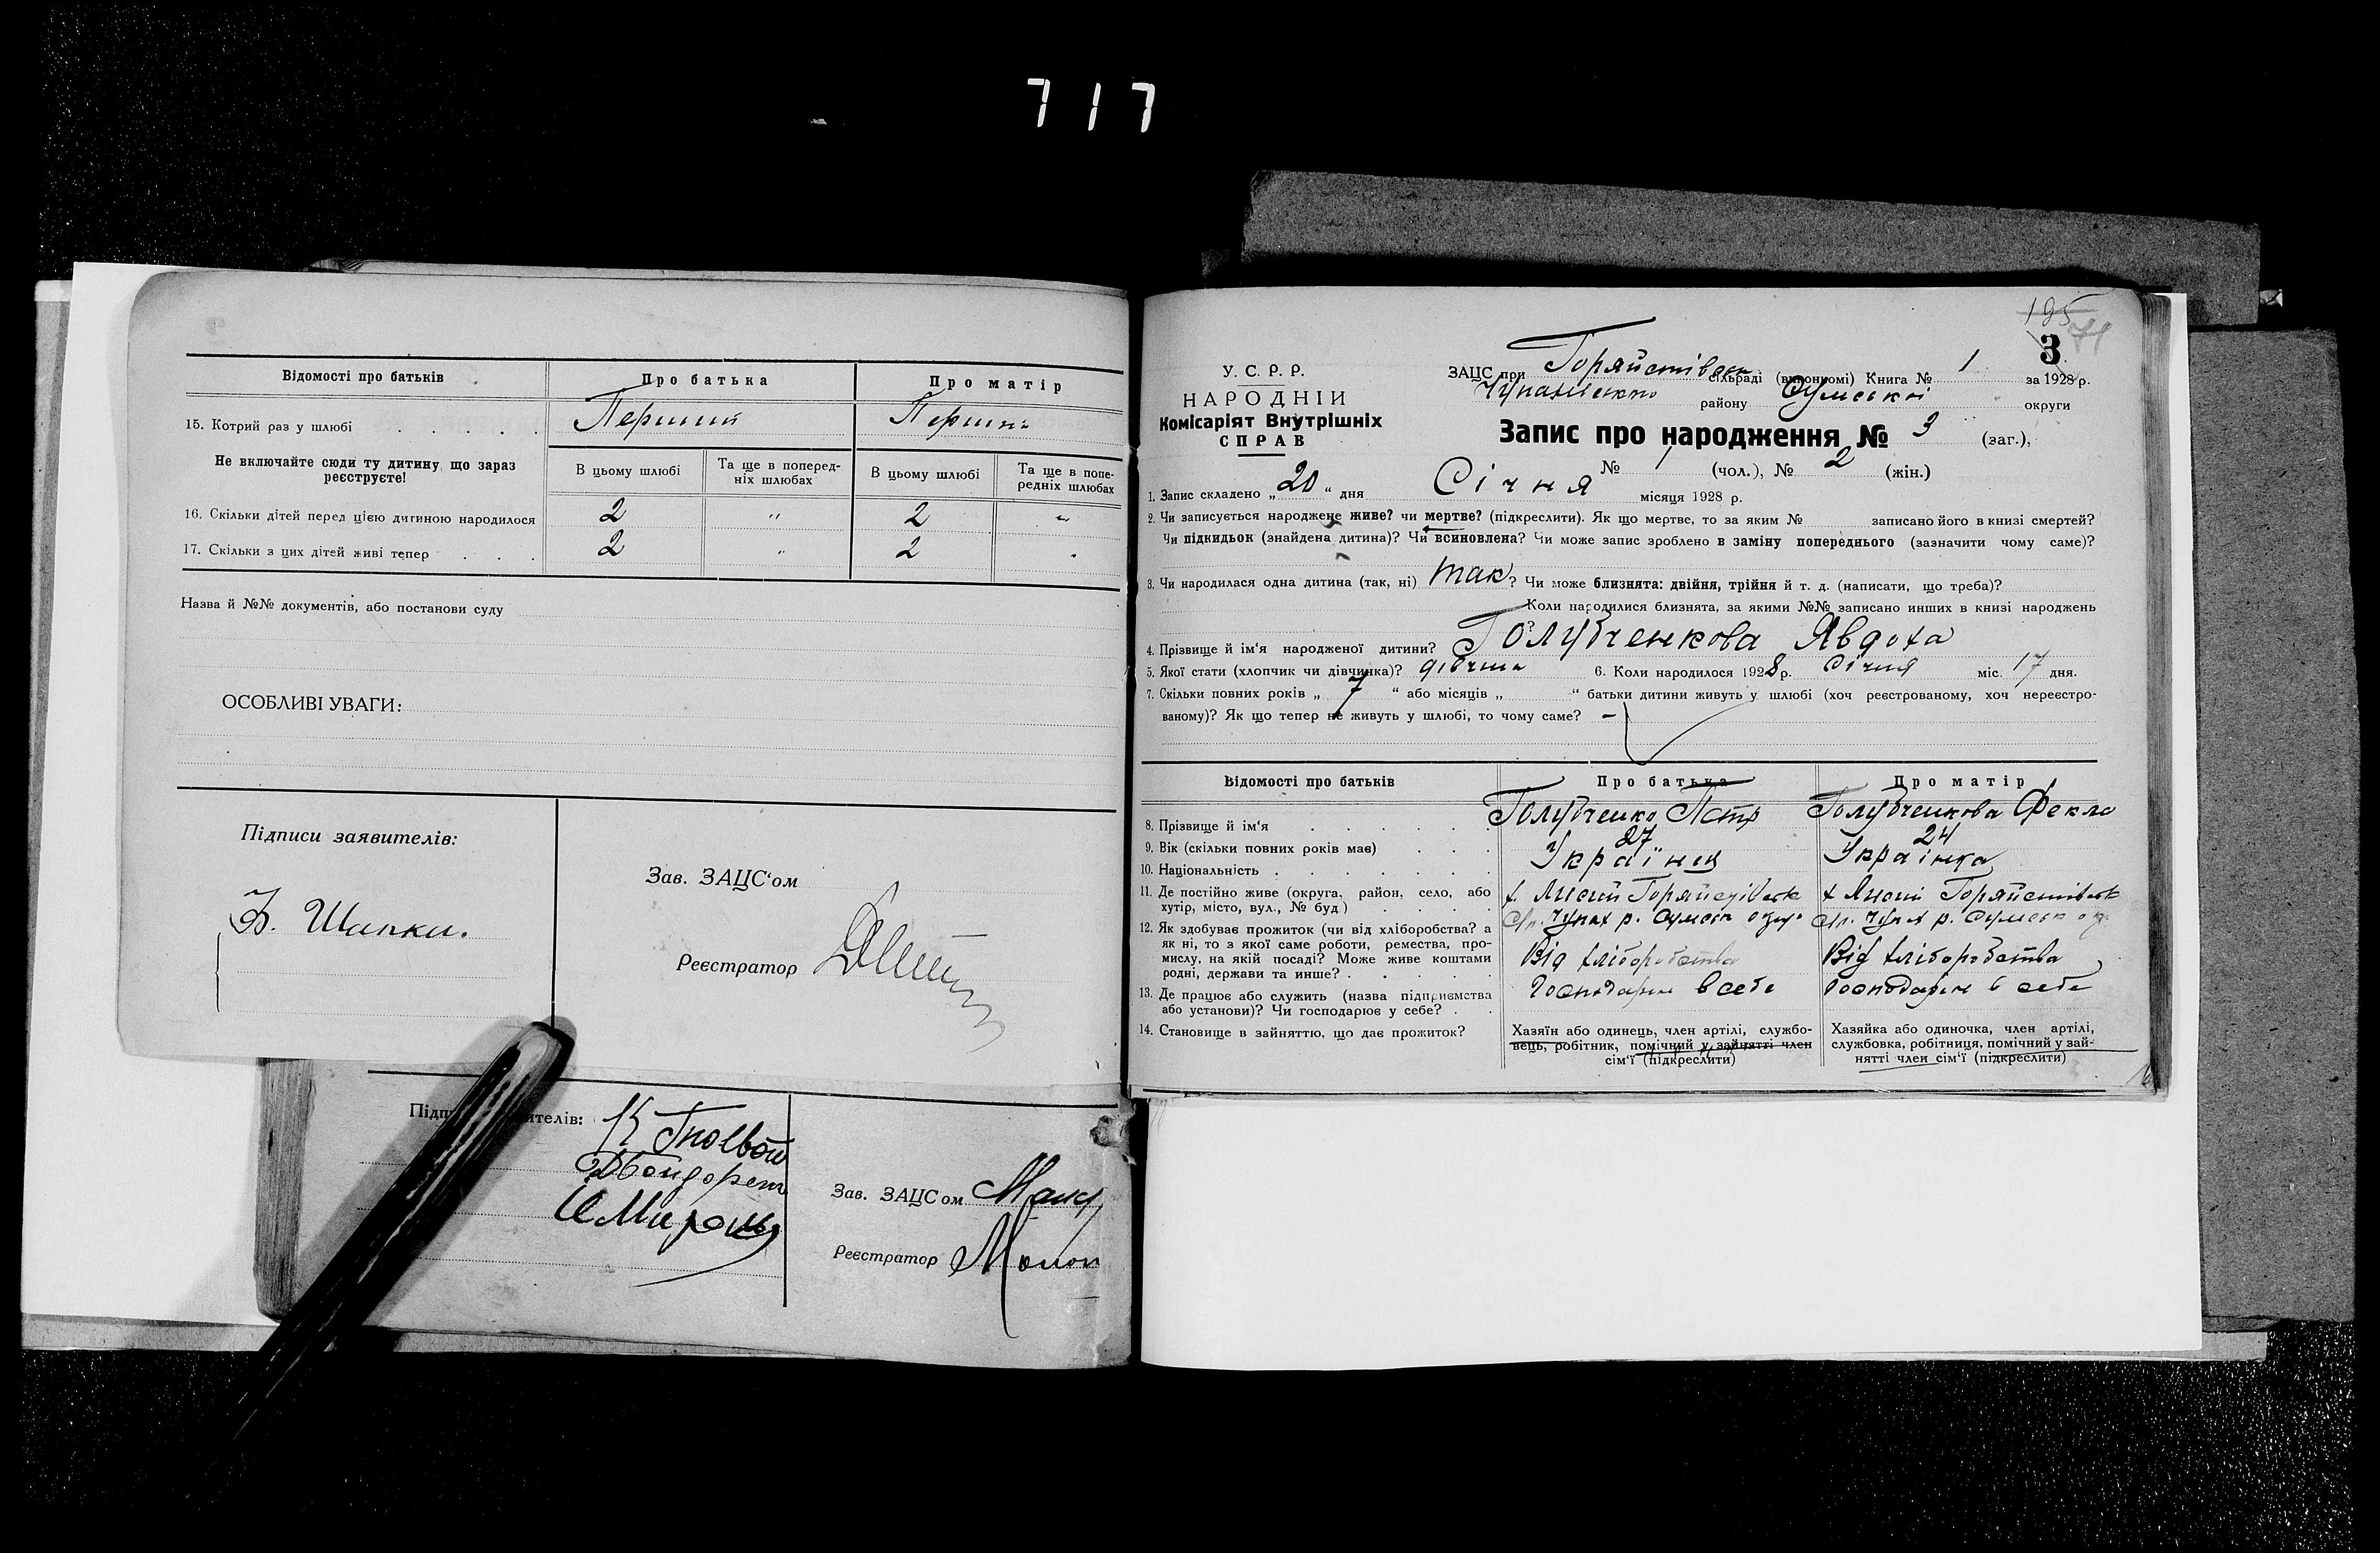 717
Відомості про батьків
Про батька
Про матір
15. Котрий раз у шлюбі
Перший
Не включайте сюди ту дитину, що зараз реєструєте!
В цьому шлюбі
Та ще в поперед-
ніх шлюбах
В цьому шлюбі
Та ще в попе-
редніх шлюбах
16. Скільки дітей перед цією дитиною народилося 2 " 2 "
17. Скільки з цих дітей живі тепер 2 " 2 "
Назва й №№ документів, або постанови суду
ОСОБЛИВІ УВАГИ:
Підписи заявителів:
Зав. ЗАЦС'ом
Реєстратор
Зав. ЗАЦСом
Реєстратор
195
71
3
У. С. Р. Р.
НАРОДНІЙ
Комісаріят Внутрішніх
СПРАВ
ЗАЦС при сільраді (виконкомі) Книга № 1 за 1928 р.
району Сумської округи
Запис про народження № 3 (заг.),
№ 1 (чол.), № 2 (жін.)
1. Запис складено „20" дня Січня місяця 1928 р.
2. Чи записується народжене живе? чи мертве? (підкреслити). Як що мертве, то за яким № записано його в книзі смертей?
Чи підкидьок (знайдена дитина)? Чи всиновлена? Чи може запис зроблено в заміну попереднього (зазначити чому саме)?
3. Чи народилася одна дитина (так, ні) так? Чи може близнята: двійня, трійня й т. д. (написати, що треба)?
Коли народилися близнята, за якими №№ записано инших в книзі народжень
4. Прізвище й ім'я народженої дитини? Голубченкова Явдоха
5. Якої стати (хлопчик чи дівчинка)? дівчина 6. Коли народилося 1928 р. Січня міс. 17 дня.
7. Скільки повних років „ 7 " або місяців „ " батьки дитини живуть у шлюбі (хоч реєстрованому, хоч нереєстро-
ваному)? Як що тепер не живуть у шлюбі, то чому саме? –
Відомості про батьків
Про батька
Про матір
8. Прізвище й ім'я Голубченко Петр Голубченкова Фекла
9. Вік (скільки повних років має) 27 24
10. Національність Українец Українка
11. Де постійно живе (округа, район, село, або
хутір, місто, вул., № буд.)
12. Як здобуває прожиток (чи від хліборобства? а
як ні, то з якої саме роботи, ремества, про-
мислу, на якій посаді? Може живе коштами
родні, держави та инше?
Від хліборобства
Від хліборобства
13. Де працює або служить (назва підприємства
або установи)? Чи господарює у себе?
Господарює в себе
Господарює в себе
14. Становище в зайняттю, що дає прожиток?
Хазяїн або одинець, член артілі, службо-
вець, робітник, помічний у зайнятті член
сім'ї (підкреслити)
Хазяйка або одиночка, член артілі,
службовка, робітниця, помічний у зай-
нятті член сім'ї (підкреслити)